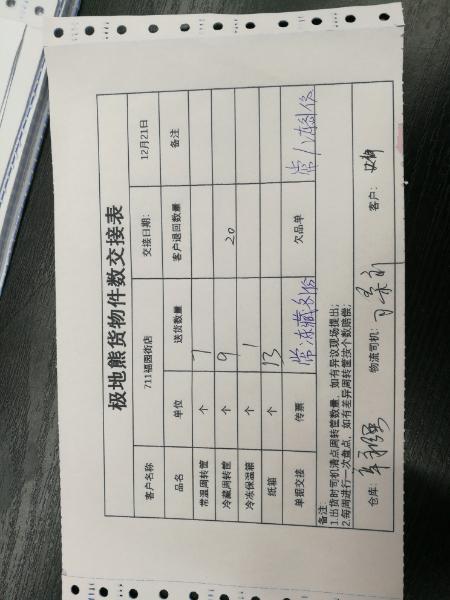 极地熊货物件数交接表
客户名称 711福园街店 交接日期: 12月21日
品名 单位 送货数量 客户退回数量 备注
常温周转筐 个 7
冷藏周转筐 个 9 20
冷冻保温箱 个 1
纸箱 个 13
单据交接 传票 常冻藏 欠品单 常
备注:
1.出货时司机清点周转筐数量,如有异议现场提出;
2.每周进行一次盘点,如有差异周转筐按个数赔偿;
仓库: 物流司机: 客户: